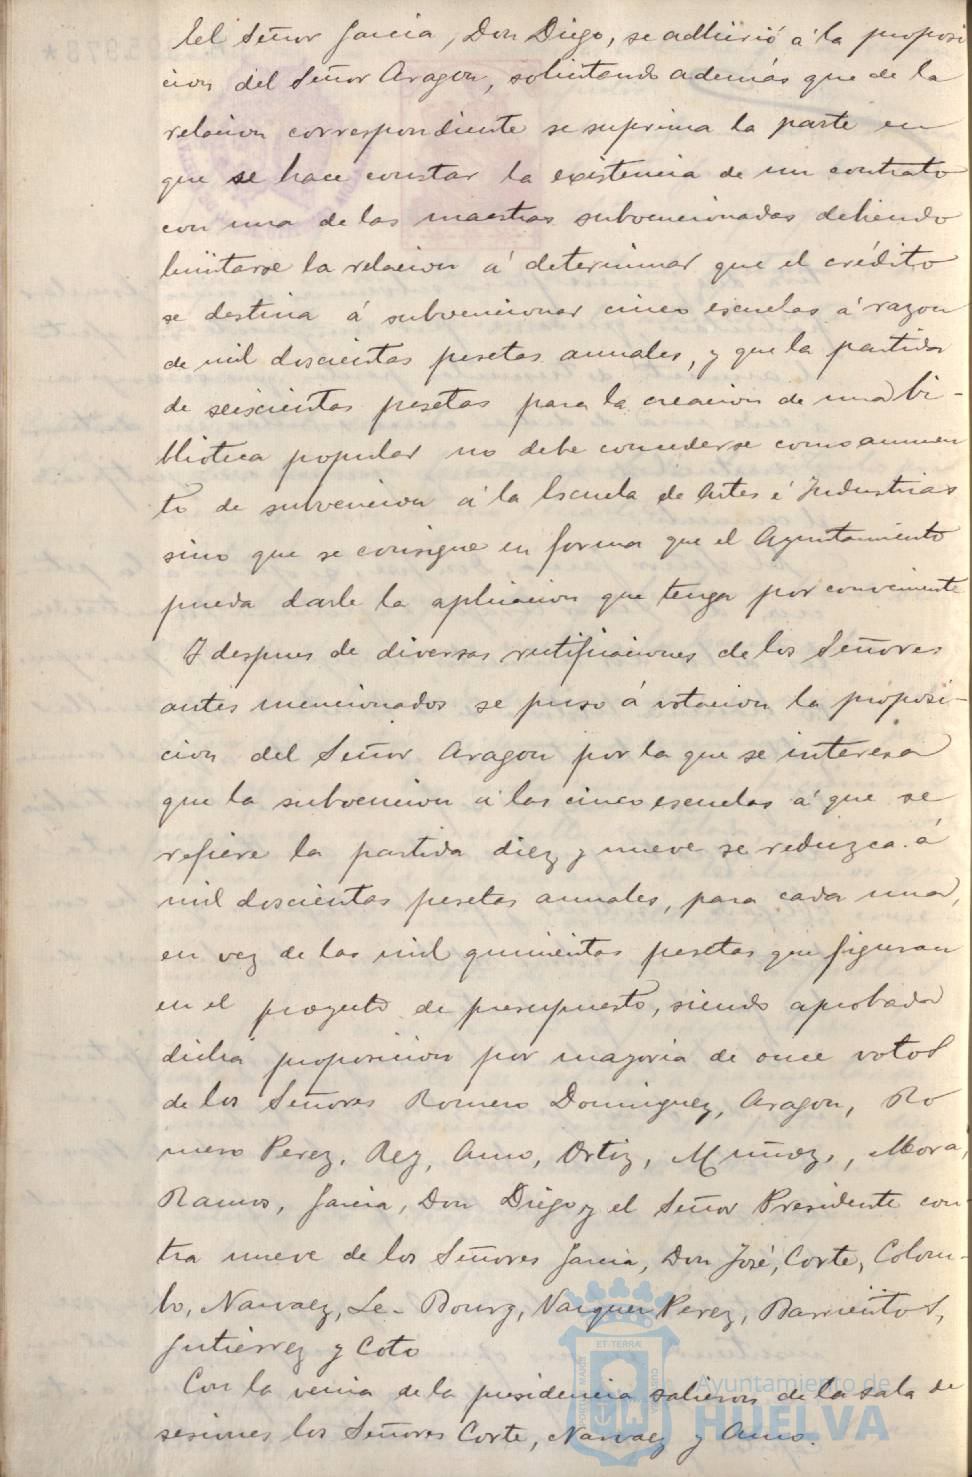 lel Señor Garcia, Don Diego, se adhirió á la proposi
cion del Señor Aragon, solicitando además que de la
relacion correspondiente se suprima la parte en
que se hace constar la existencia de un contrato
con una de las maestras subvencionadas debiendo
limitarse la relacion á determinar que el crédito
se destina á subvencionar cinco escuelas á razon
de mil doscientas pesetas anuales, y que la partida
de seiscientas pesetas para la creacion de una bi-
blioteca popular no debe concederse como aumen
to de subvencion á la Escuela de Artes é Industrias
sino que se consigne en forma que el Ayuntamiento
pueda darle la aplicacion que tenga por conveniente
Y despues de diversas rectificaciones de los Señores
antes mencionados se puso á votacion la proposi-
cion del Señor Aragon por la que se interesa
que la subvencion á las cinco escuelas á que se
refiere la partida diez y nueve se reduzca á
mil doscientas pesetas anuales, para cada una,
en vez de las mil quinientas pesetas que figuran
en el proyecto de presupuesto, siendo aprobada
dicha proposicion por mayoria de once votos
de los Señores Romero Dominguez, Aragon, Ro
mero Perez, Rey, Amo, Ortiz, Muñoz, Mora,
Ramos, Garcia, Don Diego y el Señor Presidente con-
tra nueve de los Señores Garcia, Don José, Corte, Colom-
bo, Narvaez, Le-Bourg, Vazquez Perez, Barrientos,
Gutierrez y Coto
Con la venia de la presidencia salieron de la sala de
sesiones los Señores Corte, Narvaez y Amo.
Ayuntamiento de
HUELVA